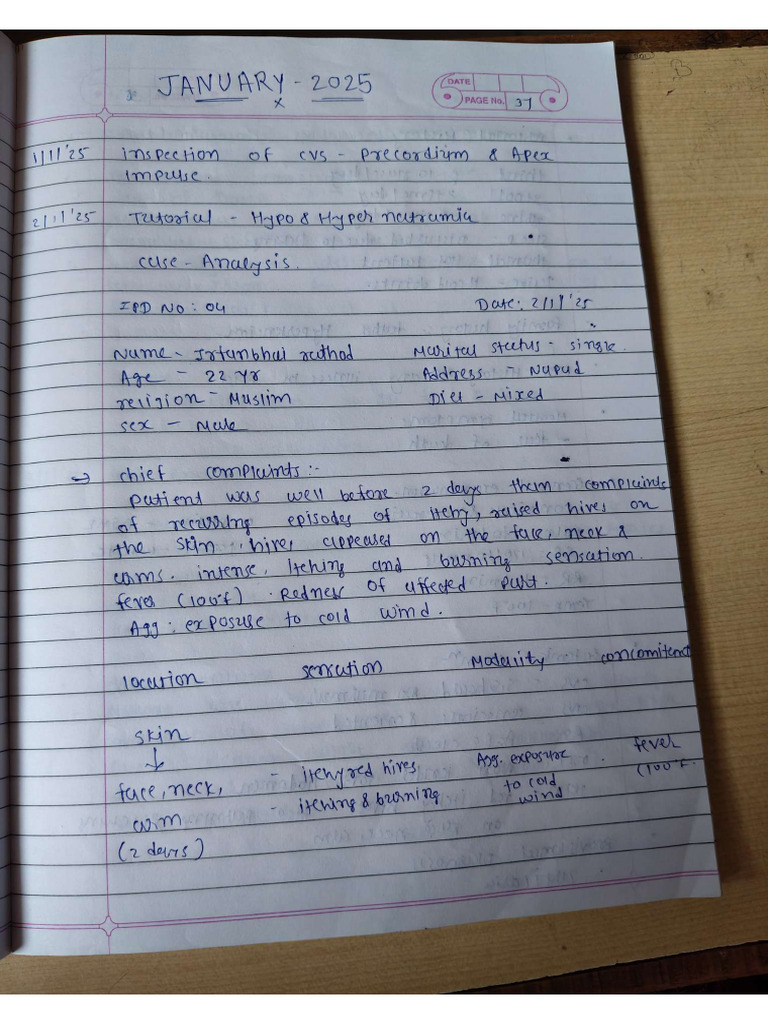 JANUARY - 2025
DATE
PAGE No. 37
1/1/'25 inspection of CVS - Precordium & Apex
impulse.
2/1/'25 Tutorial - Hypo & Hyper natramia
case - Analysis.
IPD NO : 04 Date: 2/1/'25
Name - Irfanbhai rathod Marital status - single.
Age - 22 yr Address - Napad
religion - Muslim Diet - Mixed
sex - Male
→ chief complaints :-
patient was well before 2 days them complaints
of recurring episodes of itchy, raised hives on
the skin. hives appeased on the face, neck &
arms. intense, Itching and burning sensation.
fever (100°f) . Redness of affected part.
Agg : exposure to cold wind.
location sensation Modality concomitent
skin
↓
face, neck, - itchy red hives Agg. exposure . fever
arm - itching & burning to cold (100°F.
(2 days) wind